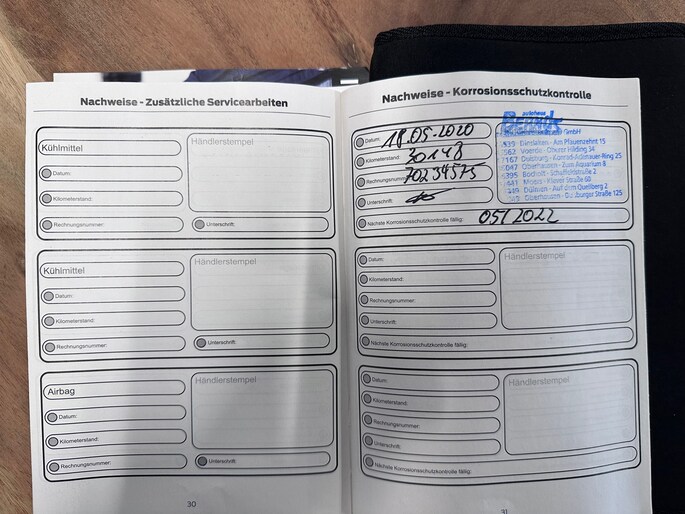 Nachweise - Zusätzliche Servicearbeiten
Kühlmittel
Händlerstempel
Datum:
Kilometerstand:
Rechnungsnummer:
Unterschrift:
Kühlmittel
Händlerstempel
Datum:
Kilometerstand:
Rechnungsnummer:
Unterschrift:
Airbag
Händlerstempel
Datum:
Kilometerstand:
Rechnungsnummer:
Unterschrift:
30
Nachweise - Korrosionsschutzkontrolle
Datum: 18.05.2020
Kilometerstand: 30148
Rechnungsnummer: 70234575
Unterschrift:
autohaus
GmbH
Dinslaken - Am Pfauenzehnt 15
Voerde - Oberer Hilding 34
Duisburg - Konrad-Adenauer-Ring 25
Oberhausen - Zum Aquarium 8
Bocholt - Schaffeldstraße 2
Moers - Klever Straße 60
Dülmen - Auf dem Quellberg 2
Oberhausen - Duisburger Straße 125
Nächste Korrosionsschutzkontrolle fällig: 05/2022
Datum:
Händlerstempel
Kilometerstand:
Rechnungsnummer:
Unterschrift:
Nächste Korrosionsschutzkontrolle fällig:
Datum:
Händlerstempel
Kilometerstand:
Rechnungsnummer:
Unterschrift:
Nächste Korrosionsschutzkontrolle fällig:
31